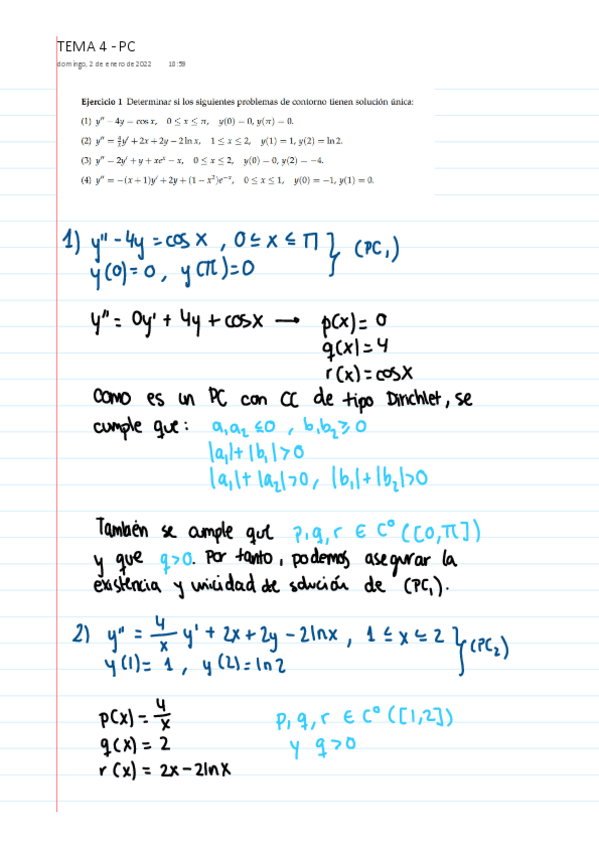 TEMA 4 - PC
domingo, 2 de enero de 2022 18:59
Ejercicio 1 Determinar si los siguientes problemas de contorno tienen solución única:
(1) y'' − 4y = cos x, 0 ≤ x ≤ π, y(0) = 0, y(π) = 0.
(2) y'' = 4/x y' + 2x + 2y − 2 ln x, 1 ≤ x ≤ 2, y(1) = 1, y(2) = ln 2.
(3) y'' − 2y' + y + xeˣ − x, 0 ≤ x ≤ 2, y(0) − 0, y(2) − −4.
(4) y'' = −(x + 1)y' + 2y + (1 − x²)e⁻ˣ, 0 ≤ x ≤ 1, y(0) = −1, y(1) = 0.
1) y'' - 4y = cos x , 0 ≤ x ≤ π } (PC₁)
y(0) = 0 , y(π) = 0
y'' = 0y' + 4y + cosx → p(x) = 0
q(x) = 4
r(x) = cosx
Como es un PC con CC de tipo Dirichlet, se
cumple que: a₁a₂ ≤ 0 , b₁b₂ ≥ 0
|a₁| + |b₁| > 0
|a₁| + |a₂| > 0, |b₁| + |b₂| > 0
También se cumple que p,q,r ∈ C⁰([0,π])
y que q>0. Por tanto, podemos asegurar la
existencia y unicidad de solución de (PC₁).
2) y'' = 4/x y' + 2x + 2y - 2lnx , 1 ≤ x ≤ 2 } (PC₂)
y(1) = 1 , y(2) = ln2
p(x) = 4/x p,q,r ∈ C⁰([1,2])
q(x) = 2 y q>0
r(x) = 2x - 2lnx